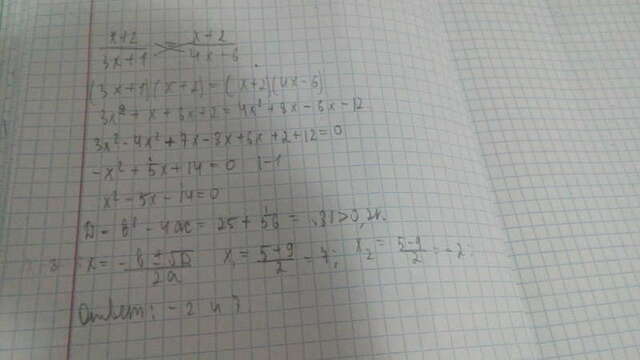 x+2/3x+1 = x+2/4x-6
(3x+1)(x+2)=(x+2)(4x-6)
3x²+x+6x+2=4x²+8x-6x-12
3x²-4x²+7x-8x+6x+2+12=0
-x²+5x+14=0 |-1
x²-5x-14=0
D=b²-4ac=25+56=81>0, 2к.
x=-b±√D/2a x₁=5+9/2=7; x₂=5-9/2=-2;
Ответ: -2 и 7